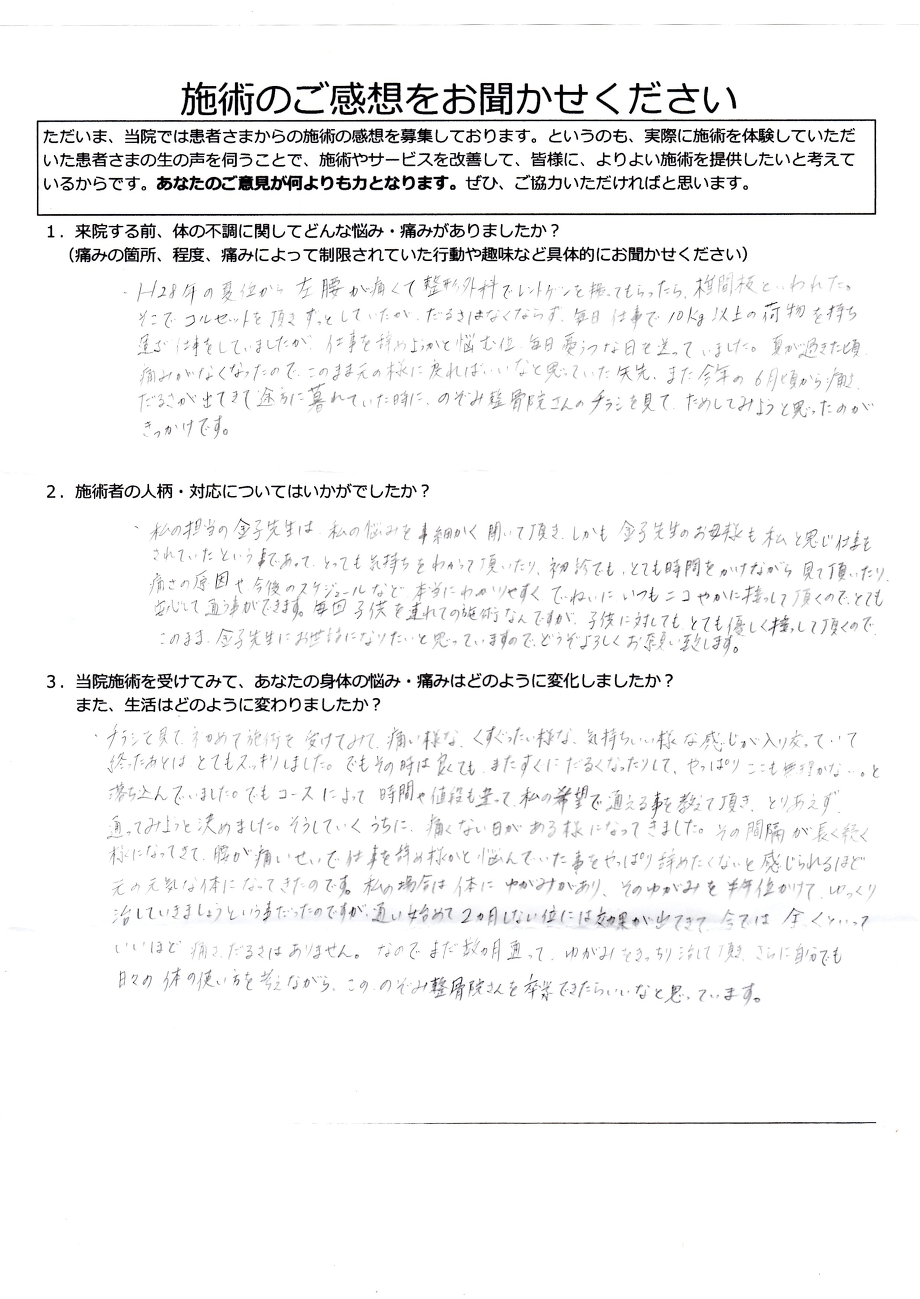 施術のご感想をお聞かせください
ただいま、当院では患者さまからの施術の感想を募集しております。というのも、実際に施術を体験していただ
いた患者さまの生の声を伺うことで、施術やサービスを改善して、皆様に、よりよい施術を提供したいと考えて
いるからです。あなたのご意見が何よりも力となります。ぜひ、ご協力いただければと思います。
1．来院する前、体の不調に関してどんな悩み・痛みがありましたか？
（痛みの箇所、程度、痛みによって制限されていた行動や趣味など具体的にお聞かせください）
・H28年の夏位から 左腰が痛くて整形外科でレントゲンを撮ってもらったら、椎間板といわれた。
そこで コルセットを頂きずっとしていたが、だるさはなくならず、毎日仕事で10kg以上の荷物を持ち
運ぶ仕事をしていましたが、仕事を辞めようかと悩む位、毎日憂うつな日を送っていました。夏が過ぎた頃、
痛みがなくなったので、このまま元の様に戻ればいいなと思っていた矢先、また今年の6月頃から痛さ、
だるさが出てきて途方に暮れていた時に、のぞみ整骨院さんのチラシを見て、ためしてみようと思ったのが
きっかけです。
2．施術者の人柄・対応についてはいかがでしたか？
・私の担当の金子先生は、私の悩みを事細かく聞いて頂き、しかも 金子先生のお母様も私と同じ仕事を
されていたという事であって、とっても気持ちをわかって頂いたり、初診でも、とても時間をかけながら 見て頂いたり、
痛さの原因や今後のスケジュールなど 本当にわかりやすく ていねいに いつもニコやかに接して頂くので、とても
安心して通う事ができます。毎回子供を連れての施術なんですが、子供に対しても とても優しく接して頂くので、
このまま、金子先生にお世話になりたいと思っていますので、どうぞよろしくお願い致します。
3．当院施術を受けてみて、あなたの身体の悩み・痛みはどのように変化しましたか？
また、生活はどのように変わりましたか？
・チラシを見て、初めて施術を受けてみて、痛い様な、くすぐったい様な、気持ちいい様な感じが入り交っていて
終ったあとは とてもスッキリしました。でもその時は良くても、またすぐにだるくなったりして、やっぱりここも無理かな…。と
落ち込んでいました。でもコースによって 時間や値段も違って、私の希望で通える事を教えて頂き、とりあえず
通ってみようと決めました。そうしていくうちに、痛くない日がある様になってきました。その間隔が長く続く
様になってきて、腰が痛いせいで仕事を辞め様かと悩んでいた事をやっぱり辞めたくないと感じられるほど
元の元気な体になってきたのです。私の場合は体に ゆがみがあり、そのゆがみを半年位かけて、ゆっくり
治していきましょうという事だったのですが、通い始めて2カ月しない位には効果が出てきて、今では 全くといって
いいほど 痛さ、だるさはありません。なので まだ数カ月通って、ゆがみをきっちり治して頂き、さらに自分でも
日々の体の使い方を考えながら、この、のぞみ整骨院さんを卒業できたらいいなと思っています。